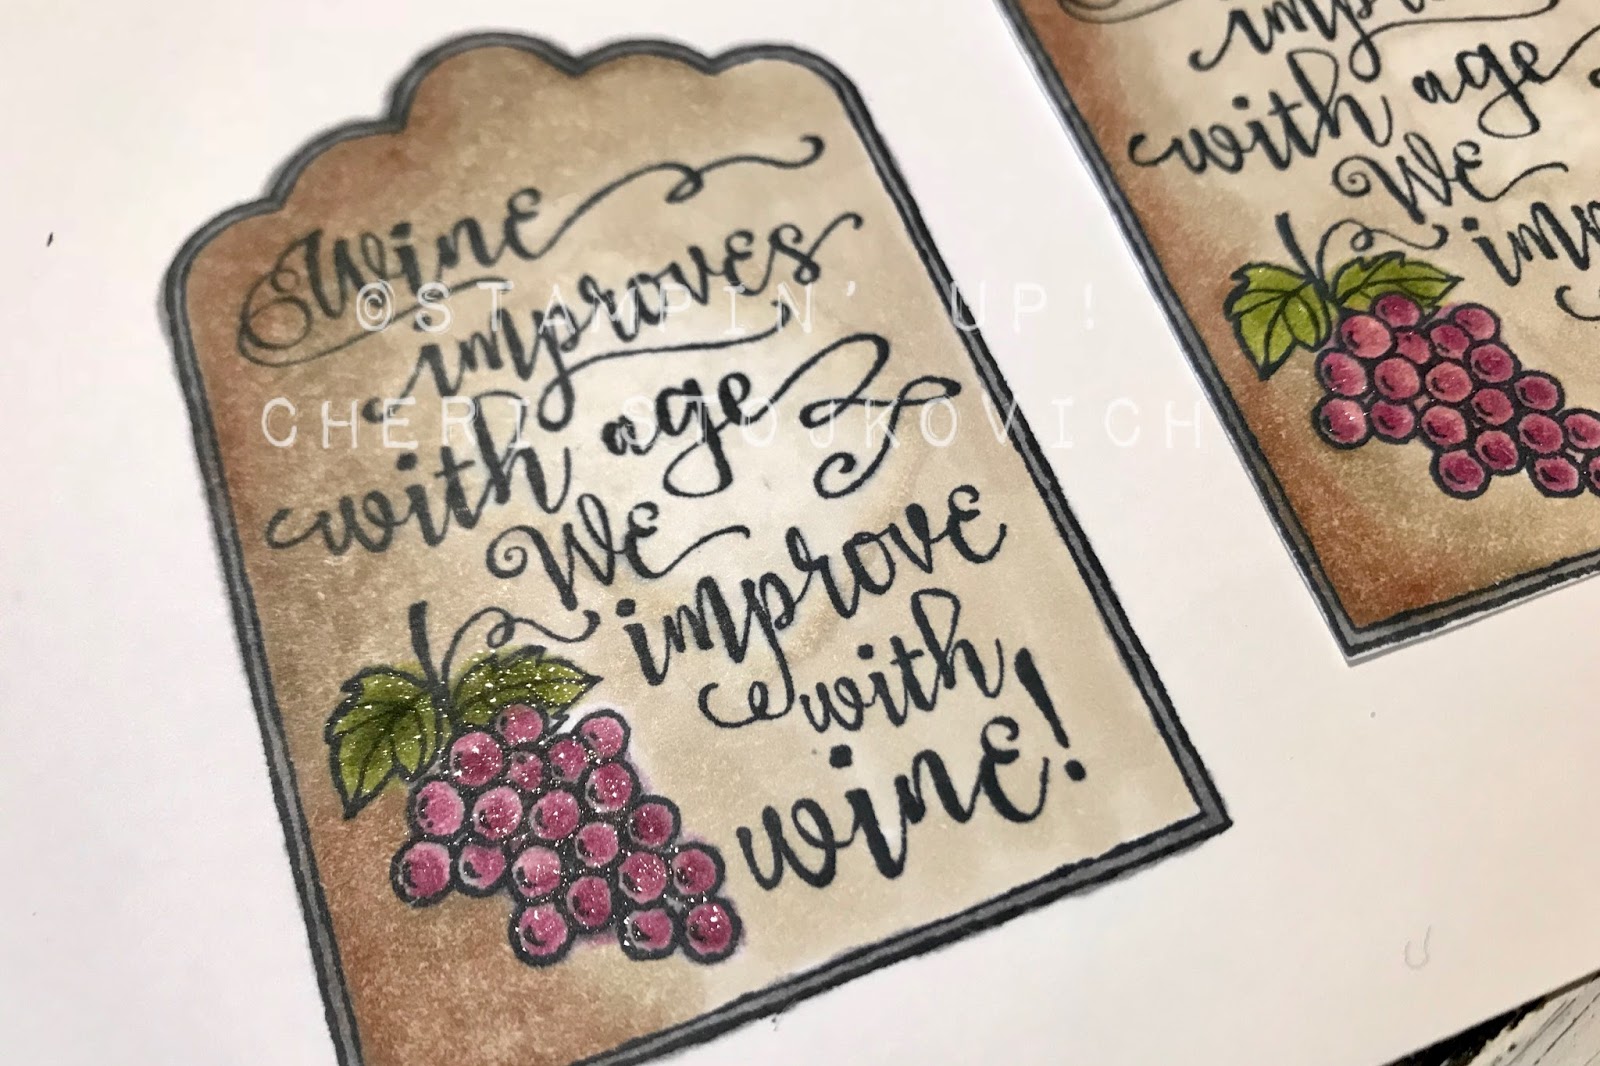 Wine
improves
with age
We
improve
with
wine!
©STAMPIN' UP!
CHERI STOJKOVICH
with age
We